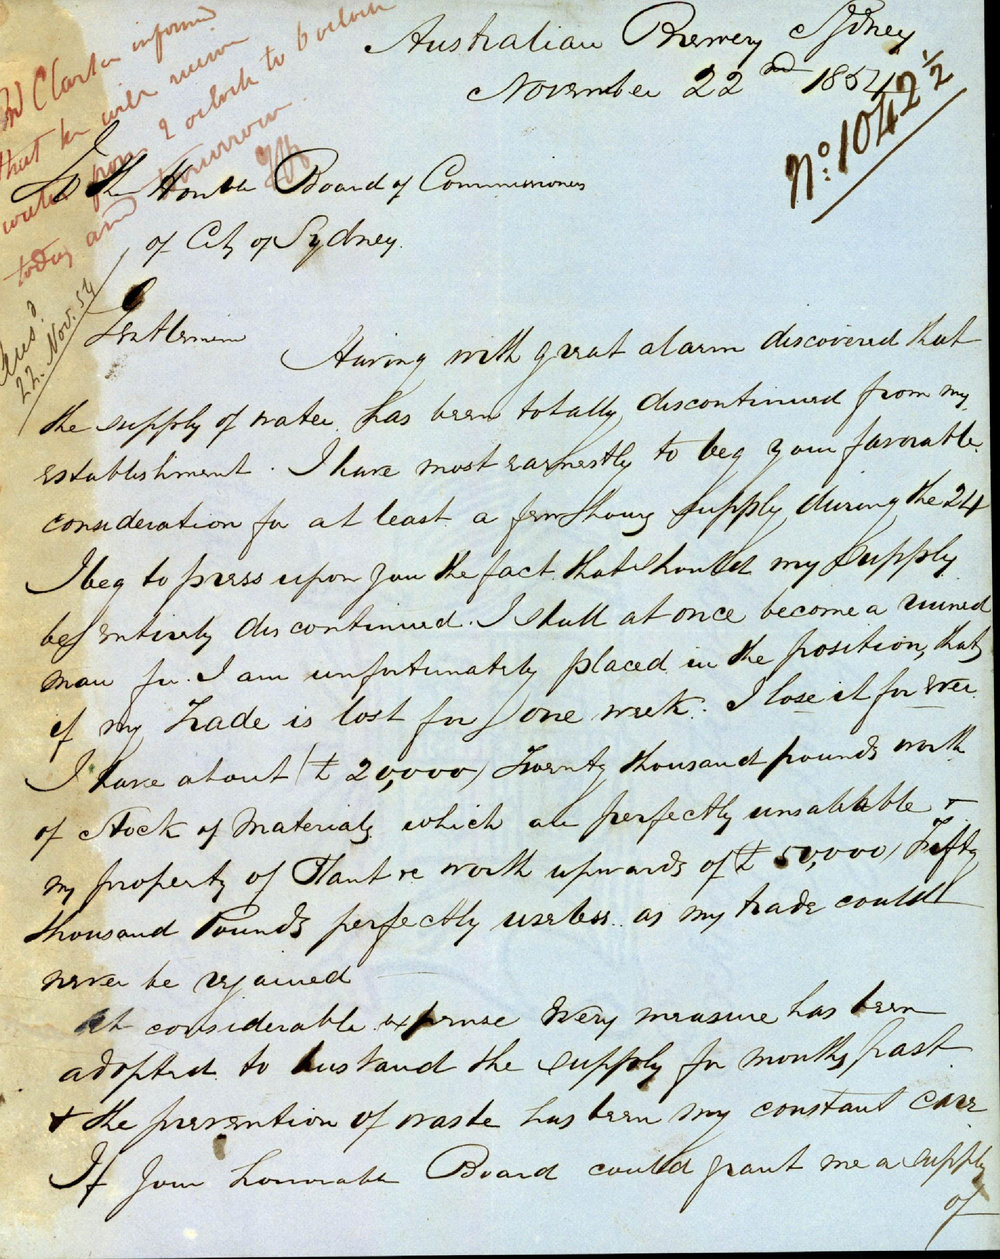 Australian Brewery Sydney
November 22nd 1854
No: 1042 1/2
Mr Clarke informed
that he will receive
water from 2 oclock to 6 oclock
today and tomorrow.
To the Honble Board of Commissioners
of City of Sydney.
22. Nov. 54
Gentlemen
Having with great alarm discovered that
the supply of water has been totally discontinued from my
establishment. I have most earnestly to beg your favorable
consideration for at least a few hours supply during the 24
I beg to press upon you the fact that should my supply
be entirely discontinued. I shall at once become a ruined
man for I am unfortunately placed in the position, that
if my Trade is lost for one week. I lose it for ever.
I have about (£20,000) Twenty thousand pounds worth
of Stock of Materials which are perfectly unsaleable &
my property of Plant &c worth upwards of (£50,000) Fifty
thousand Pounds perfectly useless as my trade could
never be regained
At considerable expense every measure has been
adopted to husband the supply for months past
& the prevention of waste has been my constant care
If your honorable Board could grant me a supply
of